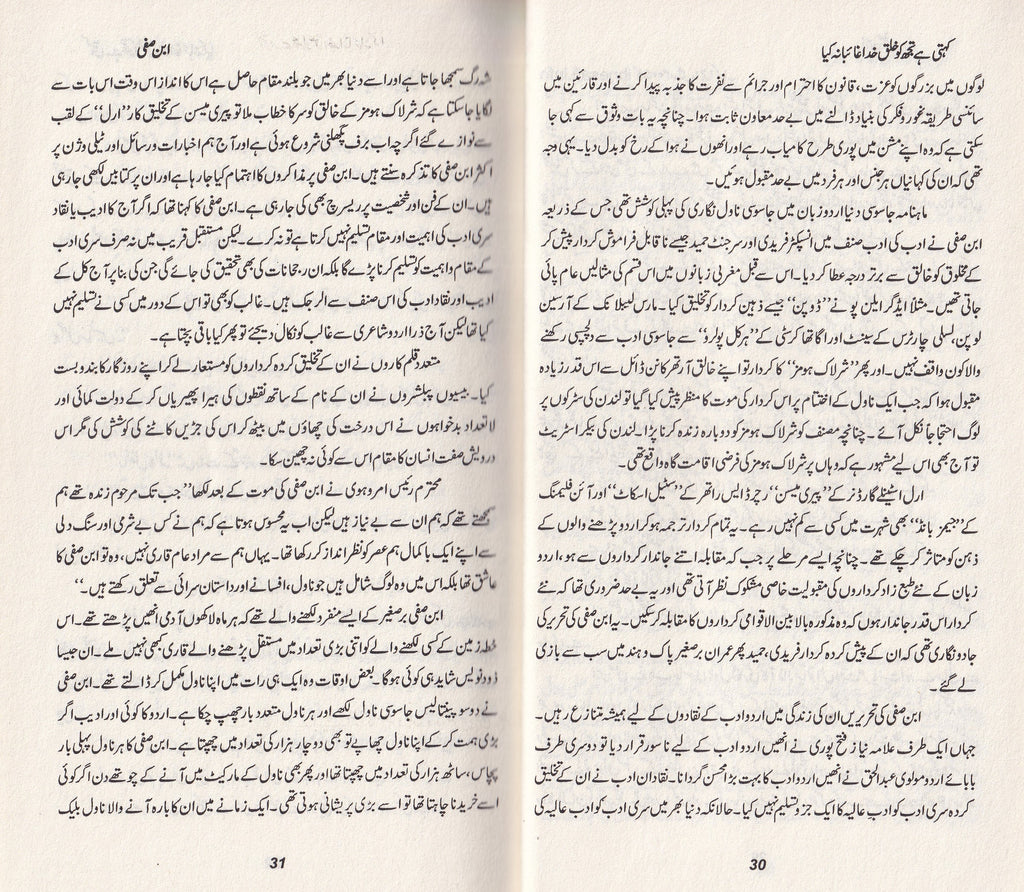 کہتی ہے تجھ کو خلق خدا غائبانہ کیا
لوگوں میں بزرگوں کو عزت، قانون کا احترام اور جرائم سے نفرت کا جذبہ پیدا کرنے اور قارئین میں
سائنسی طریقہ غور و فکر کی بنیاد ڈالنے میں بے حد معاون ثابت ہوا۔ چنانچہ یہ بات وثوق سے کہی جا
سکتی ہے کہ وہ اپنے مشن میں پوری طرح کامیاب رہے اور انھوں نے ہوا کے رخ کو بدل دیا۔ یہی وجہ
تھی کہ ان کی کہانیاں ہر جنس اور ہر فرد میں بے حد مقبول ہوئیں۔
ماہنامہ جاسوسی دنیا اردو زبان میں جاسوسی ناول نگاری کی پہلی کوشش تھی جس کے ذریعہ
ابن صفی نے ادب کی ادب صنف میں انسپکٹر فریدی اور سرجنٹ حمید جیسے ناقابل فراموش کردار پیش کر
کے مخلوق کو خالق سے برتر درجہ عطا کر دیا۔ اس سے قبل مغربی زبانوں میں اس قسم کی مثالیں عام پائی
جاتی تھیں۔ مثلاً ایڈگر ایلن پو نے ’’ڈوپن‘‘ جیسے ذہین کردار کو تخلیق کیا۔ مارس لیبلانک کے آرسین
لوپن، لسلی چارٹرس کے سینٹ اور اگاتھا کرسٹی کے ’’ہرکل پولرو‘‘ سے جاسوسی ادب سے دلچسپی رکھنے
والا کون واقف نہیں۔ اور پھر ’’شرلاک ہومز‘‘ کا کردار تو اپنے خالق آرتھر کانن ڈائل سے اس قدر زیادہ
مقبول ہوا کہ جب ایک ناول کے اختتام پر اس کردار کی موت کا منظر پیش کیا گیا تو لندن کی سڑکوں پر
لوگ احتجاجاً نکل آئے۔ چنانچہ مصنف کو شرلاک ہومز کو دوبارہ زندہ کرنا پڑا۔ لندن کی بیکر اسٹریٹ
تو آج بھی اس لیے مشہور ہے کہ وہاں پر شرلاک ہومز کی فرضی اقامت گاہ واقع تھی۔
ارل اسٹینلے گارڈنر کے ’’پیری میسن‘‘ رچرڈ ایس راتھر کے ’’سٹیل اسکاٹ‘‘ اور آئن فلیمنگ
کے ’’جیمز بانڈ‘‘ بھی شہرت میں کسی سے کم نہیں رہے۔ یہ تمام کردار ترجمہ ہو کر اردو پڑھنے والوں کے
ذہن کو متاثر کر چکے تھے۔ چنانچہ ایسے مرحلے پر جب کہ مقابلہ اتنے جاندار کرداروں سے ہو، اردو
زبان کے نئے طبع زاد کرداروں کی مقبولیت خاصی مشکوک نظر آتی تھی اور یہ بے حد ضروری تھا کہ نئے
کردار اس قدر جاندار ہوں کہ وہ مذکورہ بالا بین الاقوامی کرداروں کا مقابلہ کر سکیں۔ یہ ابن صفی کی تحریر کی
جادو نگاری تھی کہ ان کے پیش کردہ کردار فریدی، حمید پھر عمران برصغیر پاک و ہند میں سب سے بازی
لے گئے۔
ابن صفی کی تحریریں ان کی زندگی میں اردو ادب کے نقادوں کے لیے ہمیشہ متنازع رہیں۔
جہاں ایک طرف علامہ نیاز فتح پوری نے انھیں اردو ادب کے لیے ناسور قرار دیا تو دوسری طرف
بابائے اردو مولوی عبدالحق نے انھیں اردو ادب کا بہت بڑا محسن گردانا۔ نقادان ادب نے ان کے تخلیق
کردہ سری ادب کو ادب عالیہ کا ایک جزو تسلیم نہیں کیا۔ حالانکہ دنیا بھر میں سری ادب کو ادب عالیہ کی
30
ابن صفی
شہ رگ سمجھا جاتا ہے اور اسے دنیا بھر میں جو بلند مقام حاصل ہے اس کا انداز اس وقت اس بات سے
لگایا جا سکتا ہے کہ شرلاک ہومز کے خالق کو سر کا خطاب ملا تو پیری میسن کے تخلیق کار ’’ارل‘‘ کے لقب
سے نوازے گئے اگرچہ اب برف پگھلنی شروع ہوئی ہے اور آج ہم اخبارات و رسائل اور ٹیلی وژن پر
اکثر ابن صفی کا تذکرہ سنتے ہیں۔ ابن صفی پر مذاکروں کا اہتمام کیا جا رہا ہے اور ان پر کتابیں لکھی جا رہی
ہیں۔ ان کے فن اور شخصیت پر ریسرچ بھی کی جا رہی ہے۔ ابن صفی کا کہنا تھا کہ اگر آج کا ادیب یا نقاد
سری ادب کی اہمیت اور مقام تسلیم نہیں کرتا ہے تو نہ کرے۔ لیکن مستقبل قریب میں نہ صرف سری ادب
کے مقام و اہمیت کو تسلیم کرنا پڑے گا بلکہ ان رجحانات کی بھی تحقیق کی جائے گی جن کی بنا پر آج کل کے
ادیب اور نقاد ادب کی اس صنف سے الرجک ہیں۔ غالب کو بھی تو اس کے دور میں کسی نے تسلیم نہیں
کیا تھا لیکن آج ذرا اردو شاعری سے غالب کو نکال دیجئے تو پھر کیا باقی بچتا ہے۔
متعدد قلم کاروں نے ان کے تخلیق کردہ کرداروں کو مستعار لے کر اپنے روزگار کا بندوبست
کیا۔ بیسیوں پبلشروں نے ان کے نام کے ساتھ نقطوں کی ہیرا پھیریاں کر کے دولت کمائی اور
لاتعداد بدخواہوں نے اس درخت کی چھاؤں میں بیٹھ کر اس کی جڑیں کاٹنے کی کوشش کی مگر اس
درویش صفت انسان کا مقام اس سے کوئی نہ چھین سکا۔
محترم رئیس امروہوی نے ابن صفی کی موت کے بعد لکھا ’’جب تک مرحوم زندہ تھے ہم
سمجھتے تھے کہ ہم ان سے بے نیاز ہیں لیکن اب یہ محسوس ہوتا ہے کہ ہم نے کس بے شرمی اور سنگ دلی
سے اپنے ایک باکمال ہم عصر کو نظر انداز کر رکھا تھا۔ یہاں ہم سے مراد عام قاری نہیں، وہ تو ابن صفی کا
عاشق تھا بلکہ اس میں وہ لوگ شامل ہیں جو ناول، افسانے اور داستان سرائی سے تعلق رکھتے ہیں۔‘‘
ابن صفی برصغیر کے ایسے منفرد لکھنے والے تھے کہ ہر ماہ لاکھوں آدمی انھیں پڑھتے تھے۔ اس
خطہ زمین کے کسی لکھنے والے کو اتنی بڑی تعداد میں مستقل پڑھنے والے قاری کبھی نہیں ملے۔ ان جیسا
زود نویس شاید ہی کوئی ہوگا۔ بعض اوقات وہ ایک ہی رات میں اپنا ناول مکمل کر ڈالتے تھے۔ ابن صفی
نے دو سو پینتالیس جاسوسی ناول لکھے اور ہر ناول متعدد بار چھپ چکا ہے۔ اردو کا کوئی اور ادیب اگر
بڑی ہمت کر کے اپنا ناول چھاپے تو بھی دو چار ہزار کی تعداد میں چھپتا ہے۔ ابن صفی کا ہر ناول پہلی بار
پچاس، ساٹھ ہزار کی تعداد میں چھپتا تھا اور پھر بھی ناول کے مارکیٹ میں آنے کے چوتھے دن اگر کوئی
اسے خریدنا چاہتا تھا تو اسے بڑی پریشانی ہوتی تھی۔ ایک زمانے میں ان کا بارہ آنے والا ناول بلیک
31